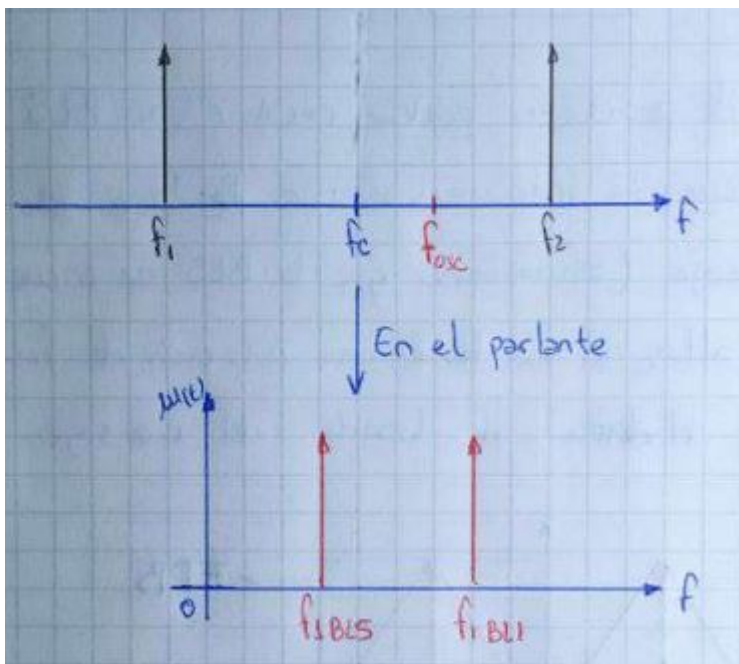 f₁ fc fosc f₂ f
En el parlante
μ(t)
0 f₁BLS f₁BLI f